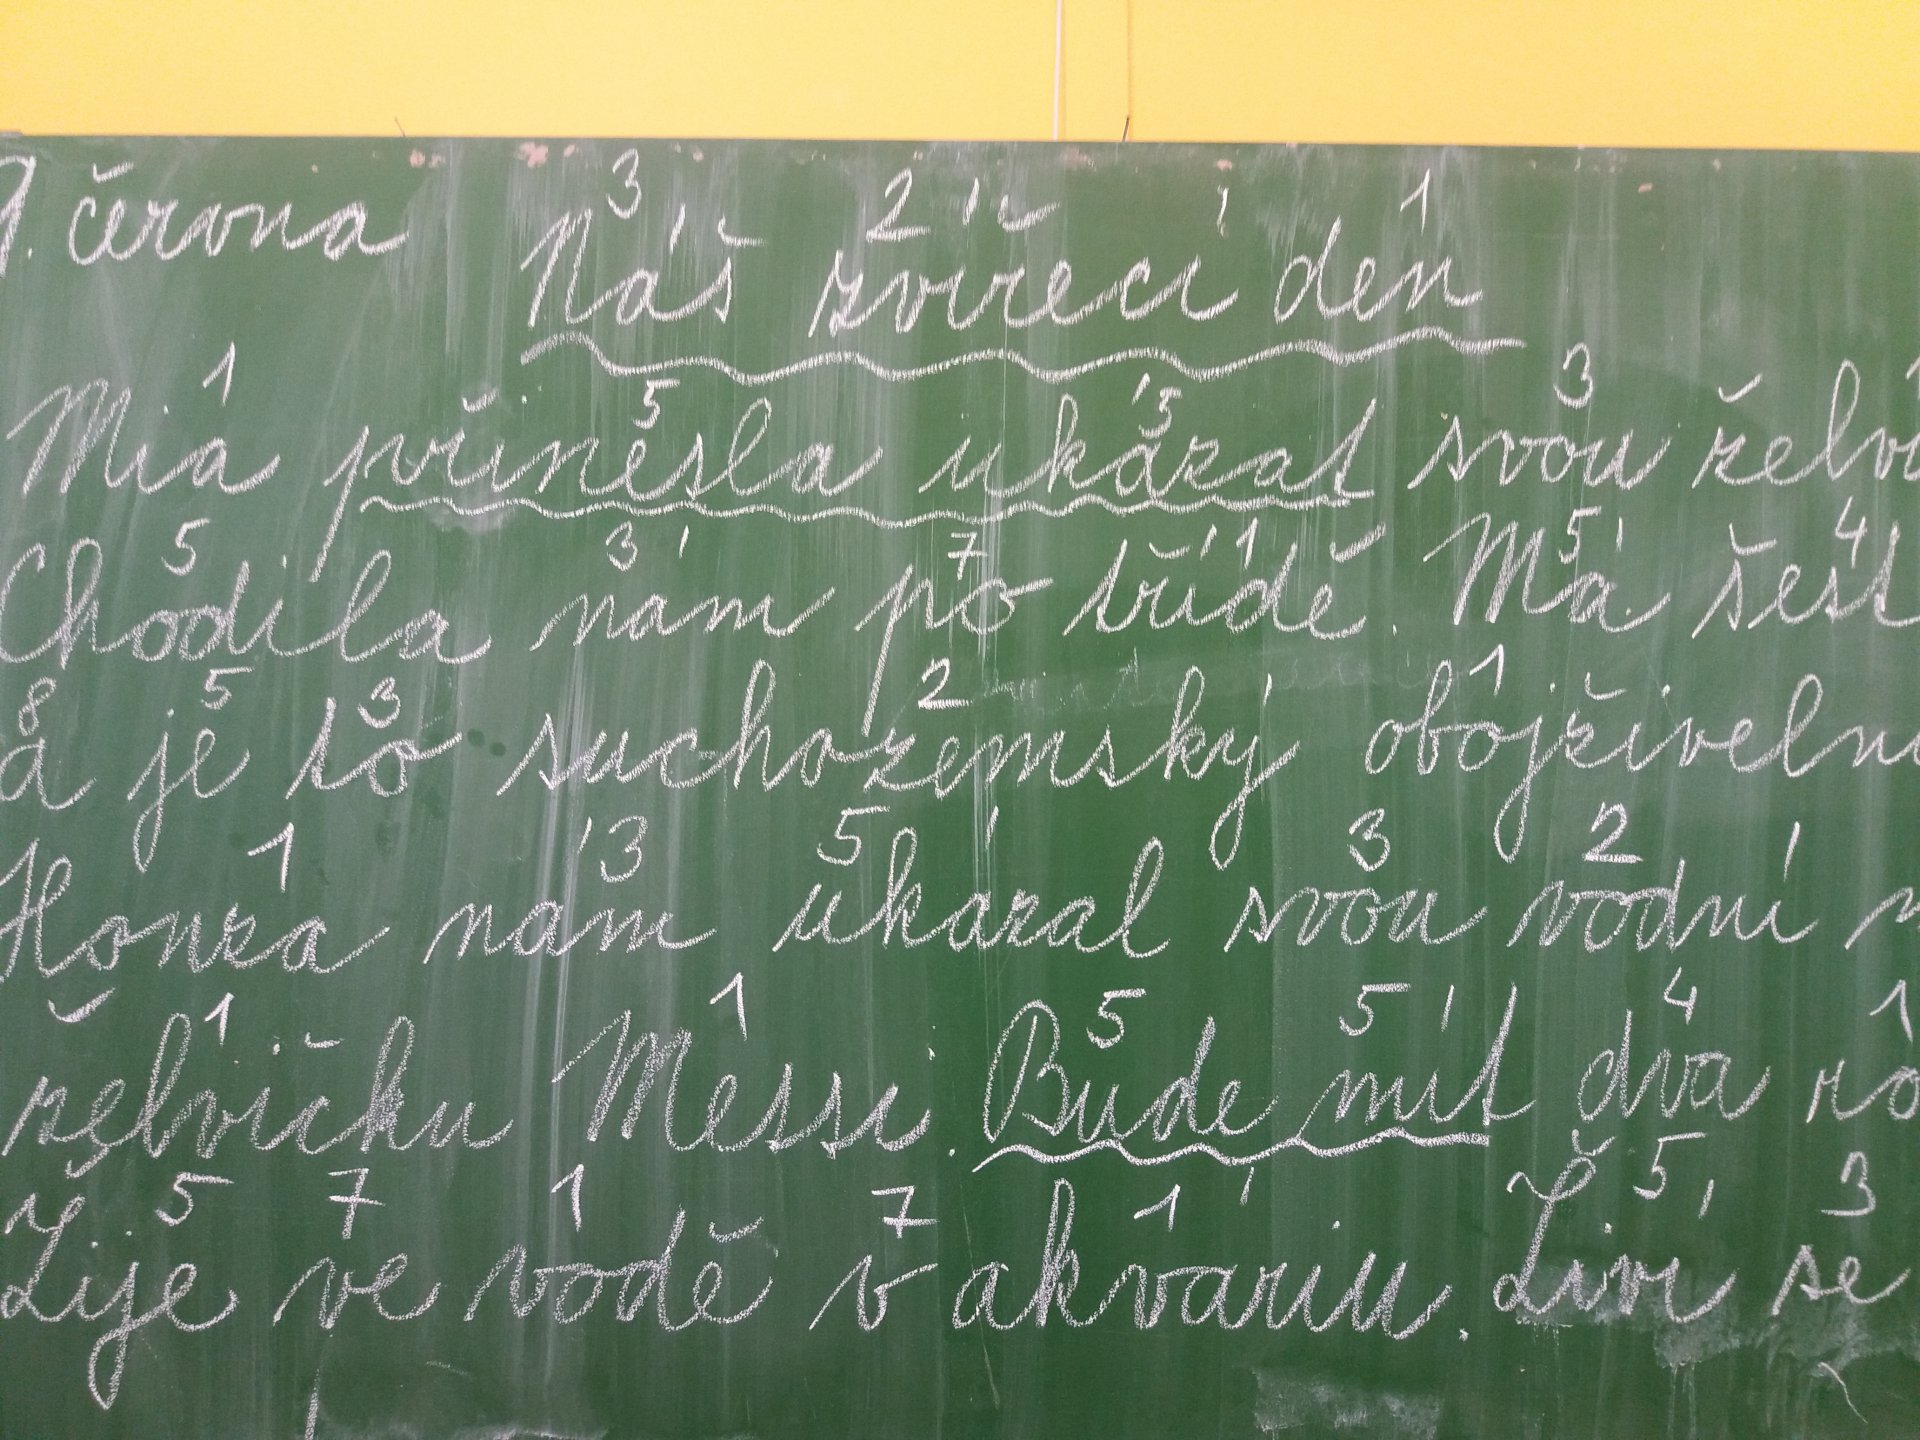 9. června
3 2 1
Náš zvířecí den
1 5 5 3
Mia přinesla ukázat svou
5 3 7 1 5 4
Chodila nám po třídě. Má šest
8 5 3 2 1
a je to suchozemský
1 3 5 3 2
Honza nám ukázal svou vodní
1 1 5 5 4 1
želvičku Messi. Bude mít dva
5 7 1 7 1 5 3
Žije ve vodě v akváriu. Živí se